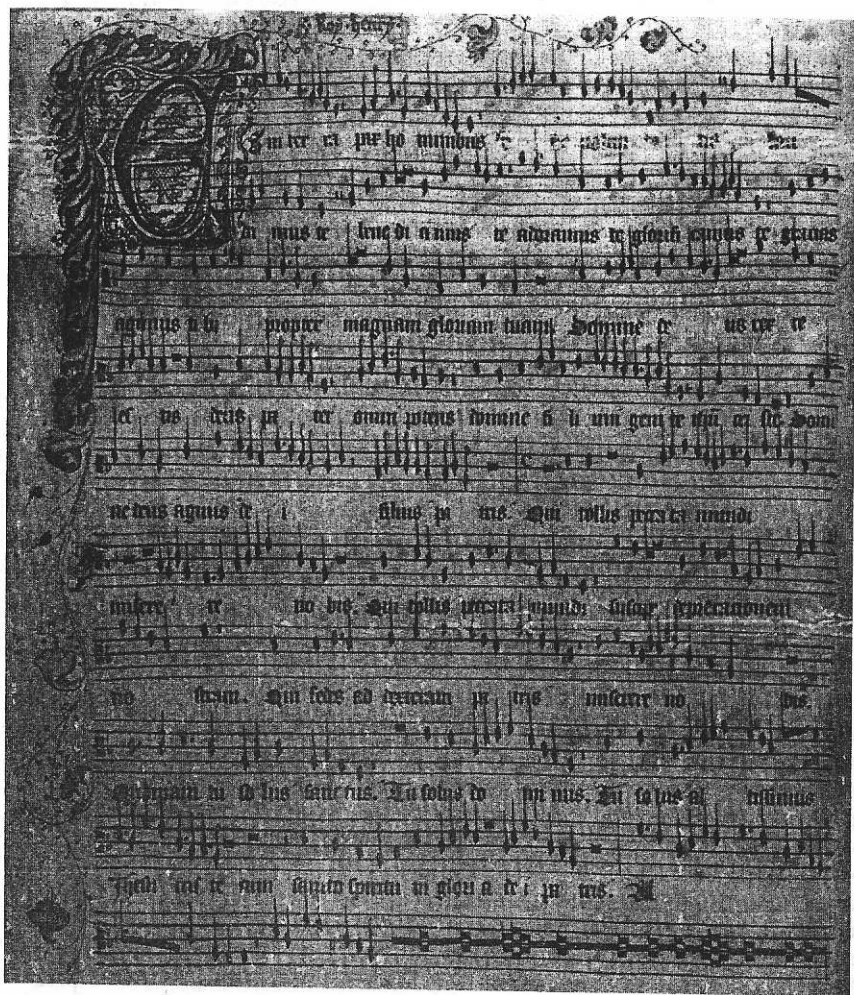 Roy henry
Et in ter ra pax ho minibus
di mus te bene di a mus te adoramus te glorifi camus te gracias
agimus ti bi propter magnam gloriam tuam Domine de us rex ce
les tis deus pa ter omni potens domine fi li uni geni te
ne deus agnus de i filius pa tris. Qui tollis peccata mundi
misere re no bis. Qui tollis peccata mundi suscipe deprecationem
no stram. Qui sedes ad dexteram pa tris miserere no bis.
Quoniam tu so lus sanc tus. Tu solus do mi nus. Tu so lus al tissimus
sancto spiritu in glori a de i pa tris. A